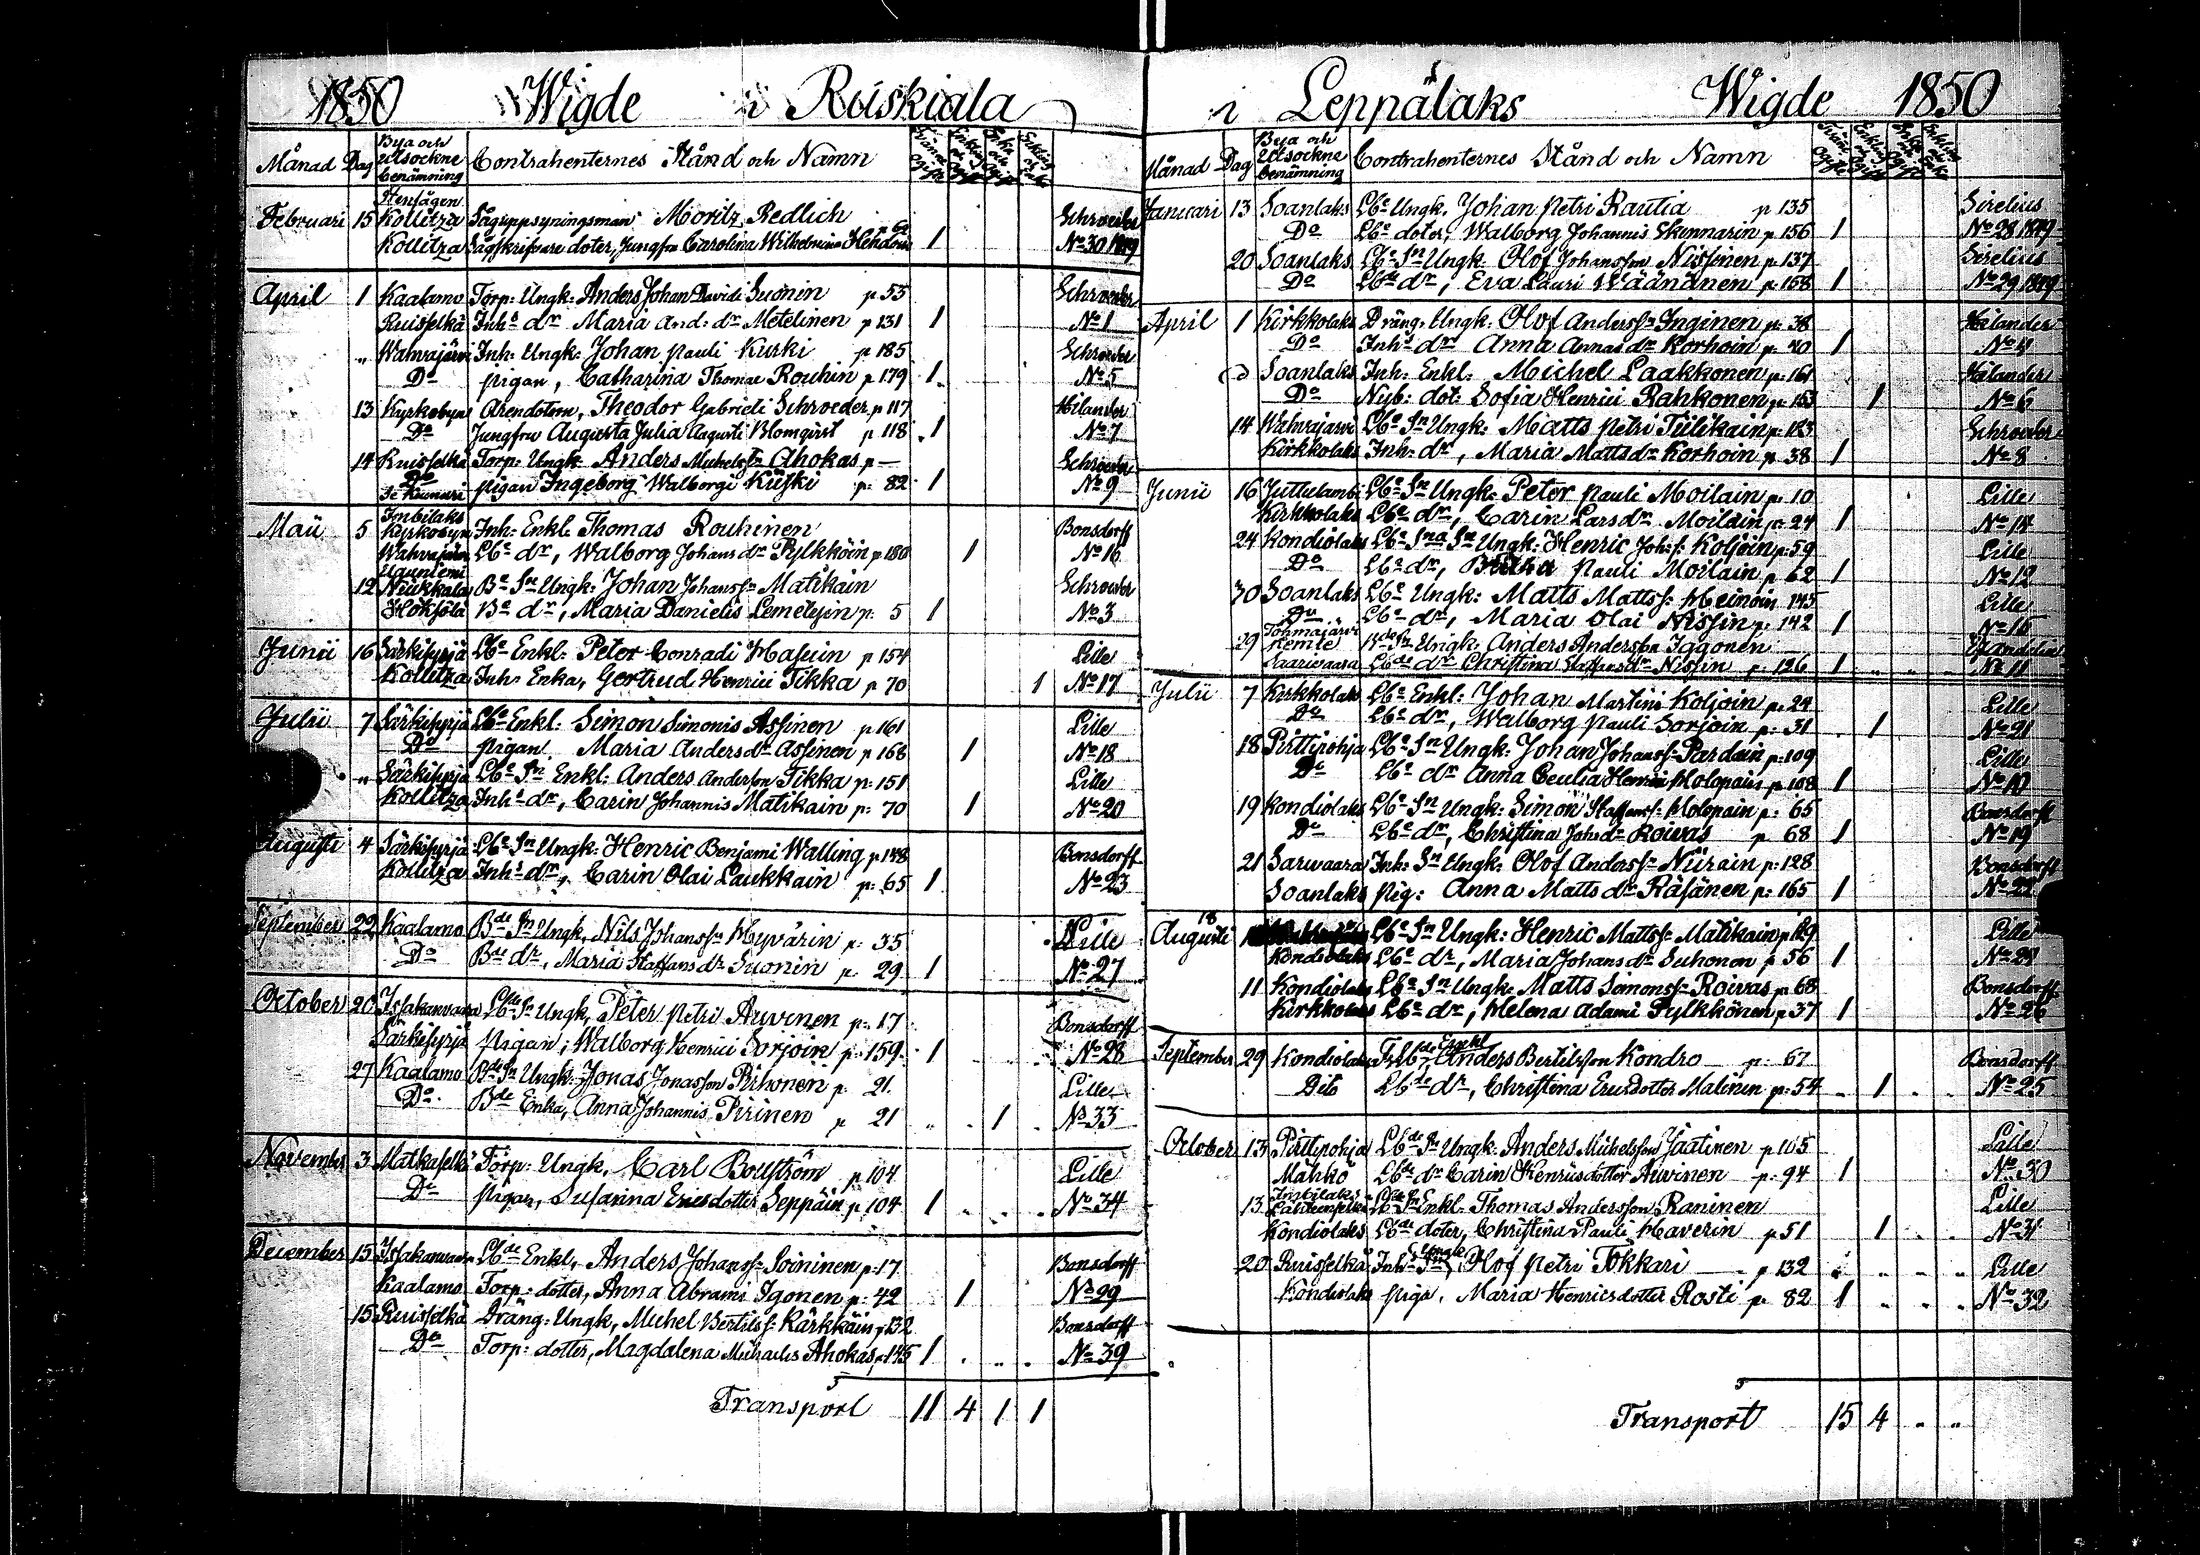 1850 Wigde i Ruskiala
Månad Dag Bya och Utsockne benämning Contrahenternes Stånd och Namn
Februari 15 Kollitza Såguppsyningsman Moritz Redlich Schroeder
Kollitza Sågskrifvare doter, Jungfru Carolina Wilhelmina 1 No 30 1849
April 1 Kaalamo Torp: Ungk: Anders Johan Davidi Suonin p 53 Schroeder
Ruisselkä Inhs dr Maria And: dr Metelinen p 131 1 No 1
" Wahvajärvi Inh: Ungk: Johan Pauli Kurki p 185 Schroeder
Do pigan, Catharina Thomae Rouhin p 179 1 No 5
13 Kyrkobyn Arendatorn, Theodor Gabrieli Schroeder p 117 Hilander
Do Jungfru Augusta Julia Augusti Blomqvist p 118 1 No 7
14 Ruisselkä Torp: Ungk: Anders Michelsson Ahokas p — Schroeder
Do pigan Ingeborg Walborgi Kuski p: 82 1 No 9
Maii 5 Imbilaks Kyrkobyn Inh: Enkl. Thomas Rouhinen Bonsdorff
Wahvajärvi Lbe dr, Walborg Johans dr Pylkköin p 180 1 No 16
12 Be Sn Ungk: Johan Johanss: Matikain Schroeder
Be dr, Maria Danielis Lemetyin p: 5 1 No 3
Junii 16 Särkisyrjä Lbe Enkl: Peter Conradi Hasuin p 154 Lille
Kollitza Inhs Enka, Gertrud Henrici Tikka p 70 1 No 17
Julii 7 Särkisyrjä Lbe Enkl: Simon Simonis Assinen p 161 Lille
Do pigan Maria Anders dr Assinen p 168 1 No 18
" Särkisyrjä Lbe Sn Enkl: Anders Andersson Tikka p: 151 Lille
Kollitza Inhs dr, Carin Johannis Matikain p: 70 1 No 20
Augusti 4 Särkisyrjä Lbe Sn Ungk: Henric Benjami Walling p 148 Bonsdorff
Kollitza Inhs dr, Carin Olai Laukkain p: 65 1 No 23
September 22 Kaalamo Bde Sn Ungk, Nils Johanss: Hyvärin p: 35 Lille
Do Bde dr, Maria Staffans dr Suonin p 29 1 No 27
October 20 Issakanvaara Lbde Sn Ungk, Peter Petri Arvinen p: 17 Bonsdorff
Särkisyrjä Pigan, Walborg Henrici Sorjoin p: 159 1 No 28
27 Kaalamo Bde Sn Ungk: Jonas Jonasson Pirhonen p 21 Lille
Do. Bde Enka, Anna Johannis Pirinen p 21 " . 1 " No 33
November 3 Matkaselkä Torp: Ungk, Carl p 104 Lille
Do pigan, Susanna Ericsdotter Seppäin p, 104 1 No 34
December 15 Issakanvaara Lbde Enkl, Anders Johanss: Soininen p: 17 Bonsdorff
Kaalamo Torp: dotter, Anna Abrami Igonen p: 42 1 No 29
15 Ruisselkä Dräng: Ungk, Michel Bertilss: Kärkkäin p 132 Bonsdorff
Do Torp: dotter, Magdalena Michaelis Ahokas, p. 145 1 No 39
Transport 11 4 1 1
i Leppälaks Wigde 1850
Månad Dag Bya och Utsockne benämning Contrahenternes Stånd och Namn
Januari 13 Soanlaks Lbe Ungk. Johan Petri Rautia p 135 Sirelius
Do Lbe doter, Walborg Johannis Skinnarin p 156 1 No 28 1849
20 Soanlaks Lbe Sn Ungk: Olof Johansson Nissinen p 137 Sirelius
Do Lbde dr, Eva Lauri Wäänänen p: 158 1 No 29 1849
April 1 Kirkkolaks Dräng: Ungk: Olof Anderss: Inginen p: 38 Hilander
Do Inhs dr Anna Annas dr Korhoin p: 40 1 No 4
Soanlaks Inh: Enkl: Michel Laakkonen p: 161 Hilander
Do Nyb: dot: Sofia Henrici Rahkonen p: 153 1 No 6
14 Wahvajärvi Lbe Sn Ungk: Matts Petri Tiilikain p: 183 Schroeder
Kirkkolaks Inh: dr, Maria Matts dr Korhoin p 38 1 No 8
Junii 16 Juttulambi Lbe Sn Ungk: Peter Pauli Moilain p: 10 Lille
Kirkkolaks Lbe dr, Carin Lars dr Moilain p: 24 1 No 14
24 Kondiolaks Lbe Sns Sn Ungk: Henric Johs: Koljoin p: 59 Lille
Do Lbe dr, Pauli Moilain p 62 1 No 12
30 Soanlaks Lbe Ungk: Matts Mattss: Heinoin 145 Lille
Do Lbe dr, Maria Olai Nissin p: 142 1 No 15
29 Tohmajärvi Kemie Bde Sn Ungk: Anders Andersson Iggonen
Saarivaara Lbde dr Christina Staffans dr Nissin p: 126 1 No 11
Julii 7 Kirkkolaks Lbe Enkl: Johan Martini Koljoin p: 24 Lille
Do Lbe dr, Walborg Pauli Sorjoin p: 31 1 No 21
18 Pirttipohja Lbe Sn Ungk: Johan Johanss: Pardain p: 109 Lille
Do Lbe dr Anna Cecilia Henrici Holopain p 108 1 No 10
19 Kondiolaks Lbe Sn Ungk: Simon Staffanss: Holopain p: 65 Bonsdorff
Do Lbe dr, Christina Johs dr Roivas p 68 1 No 19
21 Sarwaara Inh: Sn Ungk: Olof Anderss: Niirain p: 128 Bonsdorff
Soanlaks Pig: Anna Matts dr Räsänen p: 165 1 No 22
Augusti 18 Lbe Sn Ungk: Henric Mattss: Matikain p 129 Lille
Kondiolaks Lbe dr, Maria Johans dr Suhonen p 56 1 No 24
11 Kondiolaks Lbe Sn Ungk: Matts Simonss: Roivas p 68 Bonsdorff
Kirkkolaks Lbe dr, Helena Adami Pylkkönen p 37 1 No 26
September 29 Kondiolaks Enkl Anders Bertilsson Kondro p: 67 Bonsdorff
Dito Lbde dr, Christina Ericsdotter Malinen p: 54 1 No 25
October 13 Pirttipohja Lbde Sn Ungk. Anders Michelsson Jaatinen p 105 Lille
Mahkö Lbde dr Carin Henricsdotter Arvinen p: 94 1 No 30
13 Imbilaks Enkl. Thomas Andersson Raninen Lille
Kondiolaks Lbde doter, Christina Pauli Haverin p 51 1 No 31
20 Ruisselkä Inhs Sn, Ungk Olof Petri Tokkari p 132 Lille
Kondiolaks piga, Maria Henricsdotter Rosti p: 82 1 No 32
Transport 15 4 " "